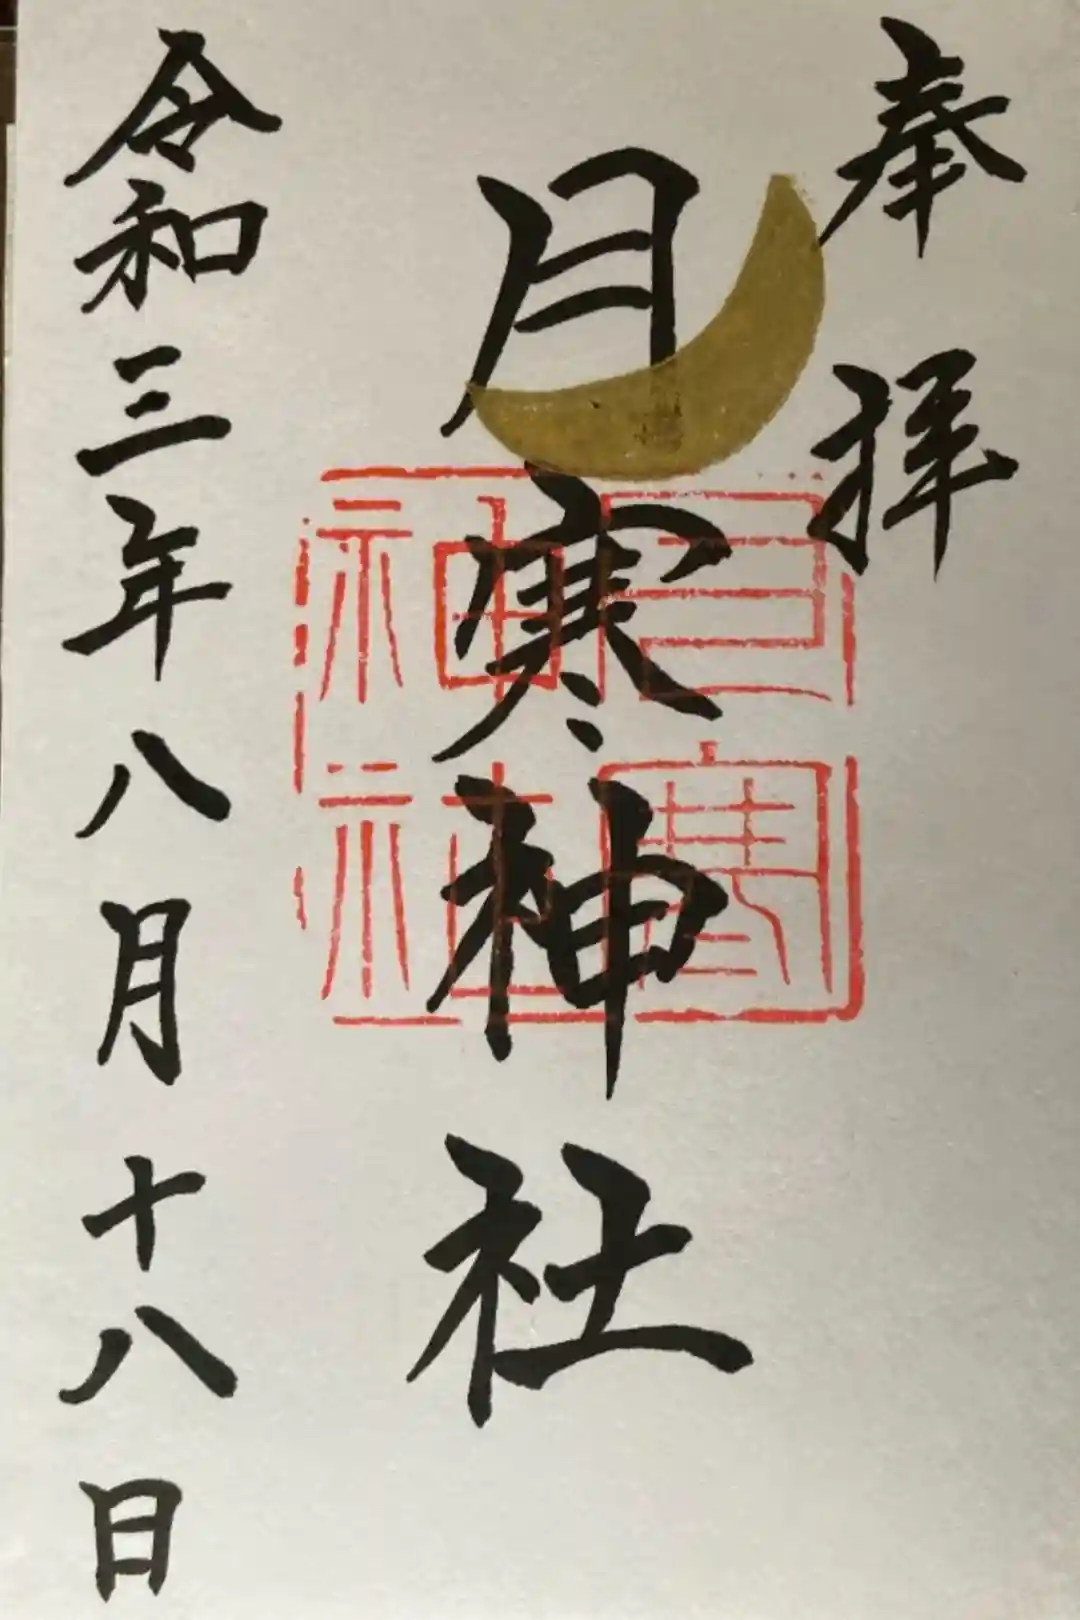 奉拝
月寒神社
月寒
神社
令和三年八月十八日